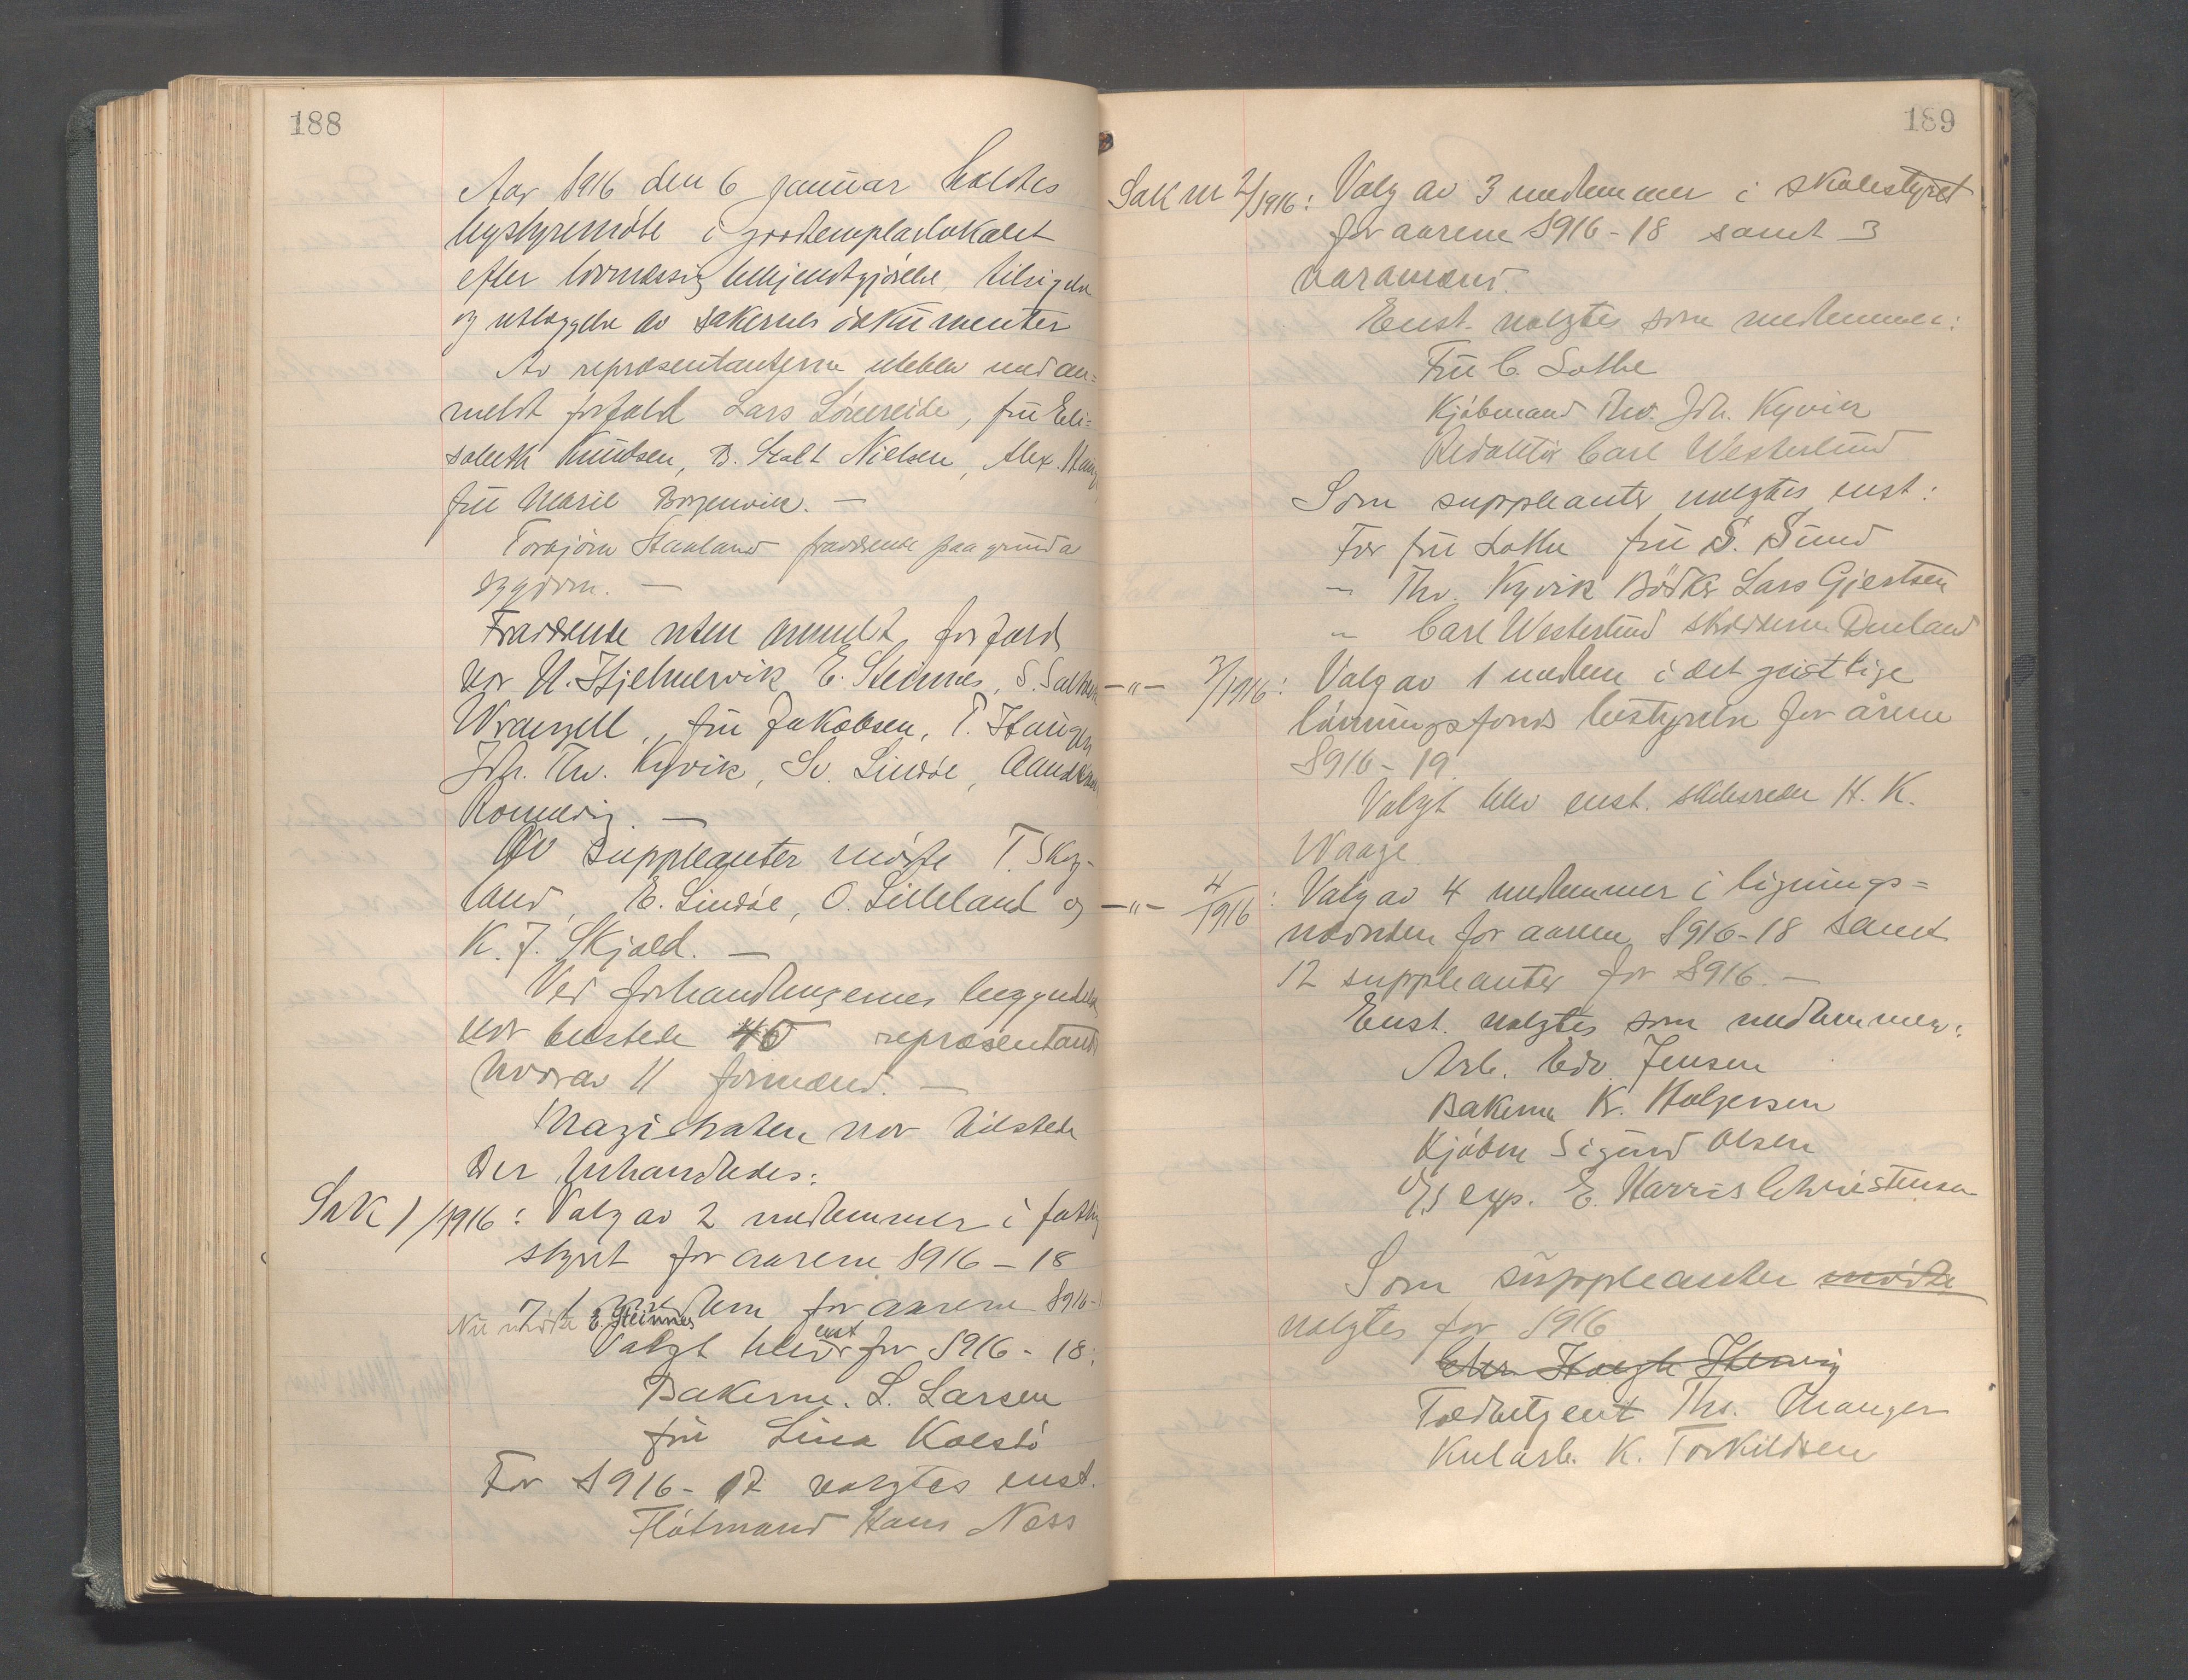 188
Aar 1916 den 6 januar holdtes
bystyremöte i goodtemplarlokalet
efter lovmæssig bekjendtgjörelse, tilsigelse
og utlæggelse av sakernes dokumenter
Av repræsentanterne uteblev med an=
meldt forfald Lars Lönereide, fru Eli=
sabeth Knudsen, B. Stolt Nielsen, Alex. Haug
fru Marie Borgenvik. —
Torbjörn Staaland fraværende paa grund a
sygdom. —
Fraværende uten anmeldt forfald
var H. Hjelmervik E. Steinnes, S. Salthe
Wrangell, fru Jakobsen, T. Haugen
Joh. Thv. Kyvik, Sv. Lindöe, Aanensen
. —
Av suppleanter mötte T. Skog-
land, E. Lindöe, O. Lilleland og
K. J. Skjold. —
Ved forhandlingernes begyndelse
var tilstede 45 repræsentant
hvorav 11 formænd. —
Magistraten var tilstede
Der behandledes:
Sak 1/1916: Valg av 2 medlemmer i fattig
styret for aarene 1916 – 18
og 1 medlem for aarene 1916-1
Nu mötte E. Steinnes
Valgt blev enst for 1916 - 18:
Bakerm. L. Larsen
fru Lina Kolstö
For 1916 - 17 valgtes enst.
Flötmand Hans Næss
189
Sak nr 2/1916: Valg av 3 medlemmer i skolestyret
for aarene 1916 - 18 samt 3
varamænd.
Enst. valgtes som medlemmer:
Fru C. Lothe
Kjöbmand Thv. Joh. Kyvik
Redaktör Carl Westerlund
Som suppleanter valgtes enst:
For fru Lothe fru S. Sund
" Thv. Kyvik Bödker Lars Gjertsen
" Carl Westerlund Denland
—"— 3/1916: Valg av 1 medlem i det geistlige
lönningsfonds bestyrelse for årene
1916 - 19.
Valgt blev enst. skibsreder H. K.
Waage.
—"— 4/1916: Valg av 4 medlemmer i lignings=
nævnden for aarene 1916-18 samt
12 suppleanter for 1916. —
Enst. valgtes som medlemmer:
Arb. Edv. Jensen
Bakerm K. Holgersen
Kjöbm Sigurd Olsen
D/S exp. E. Harris Christensen
Som suppleanter mötte
valgtes for 1916
Chr. Haugh
Toldbetjent Ths. Manger
Kularb. K. Torkildsen